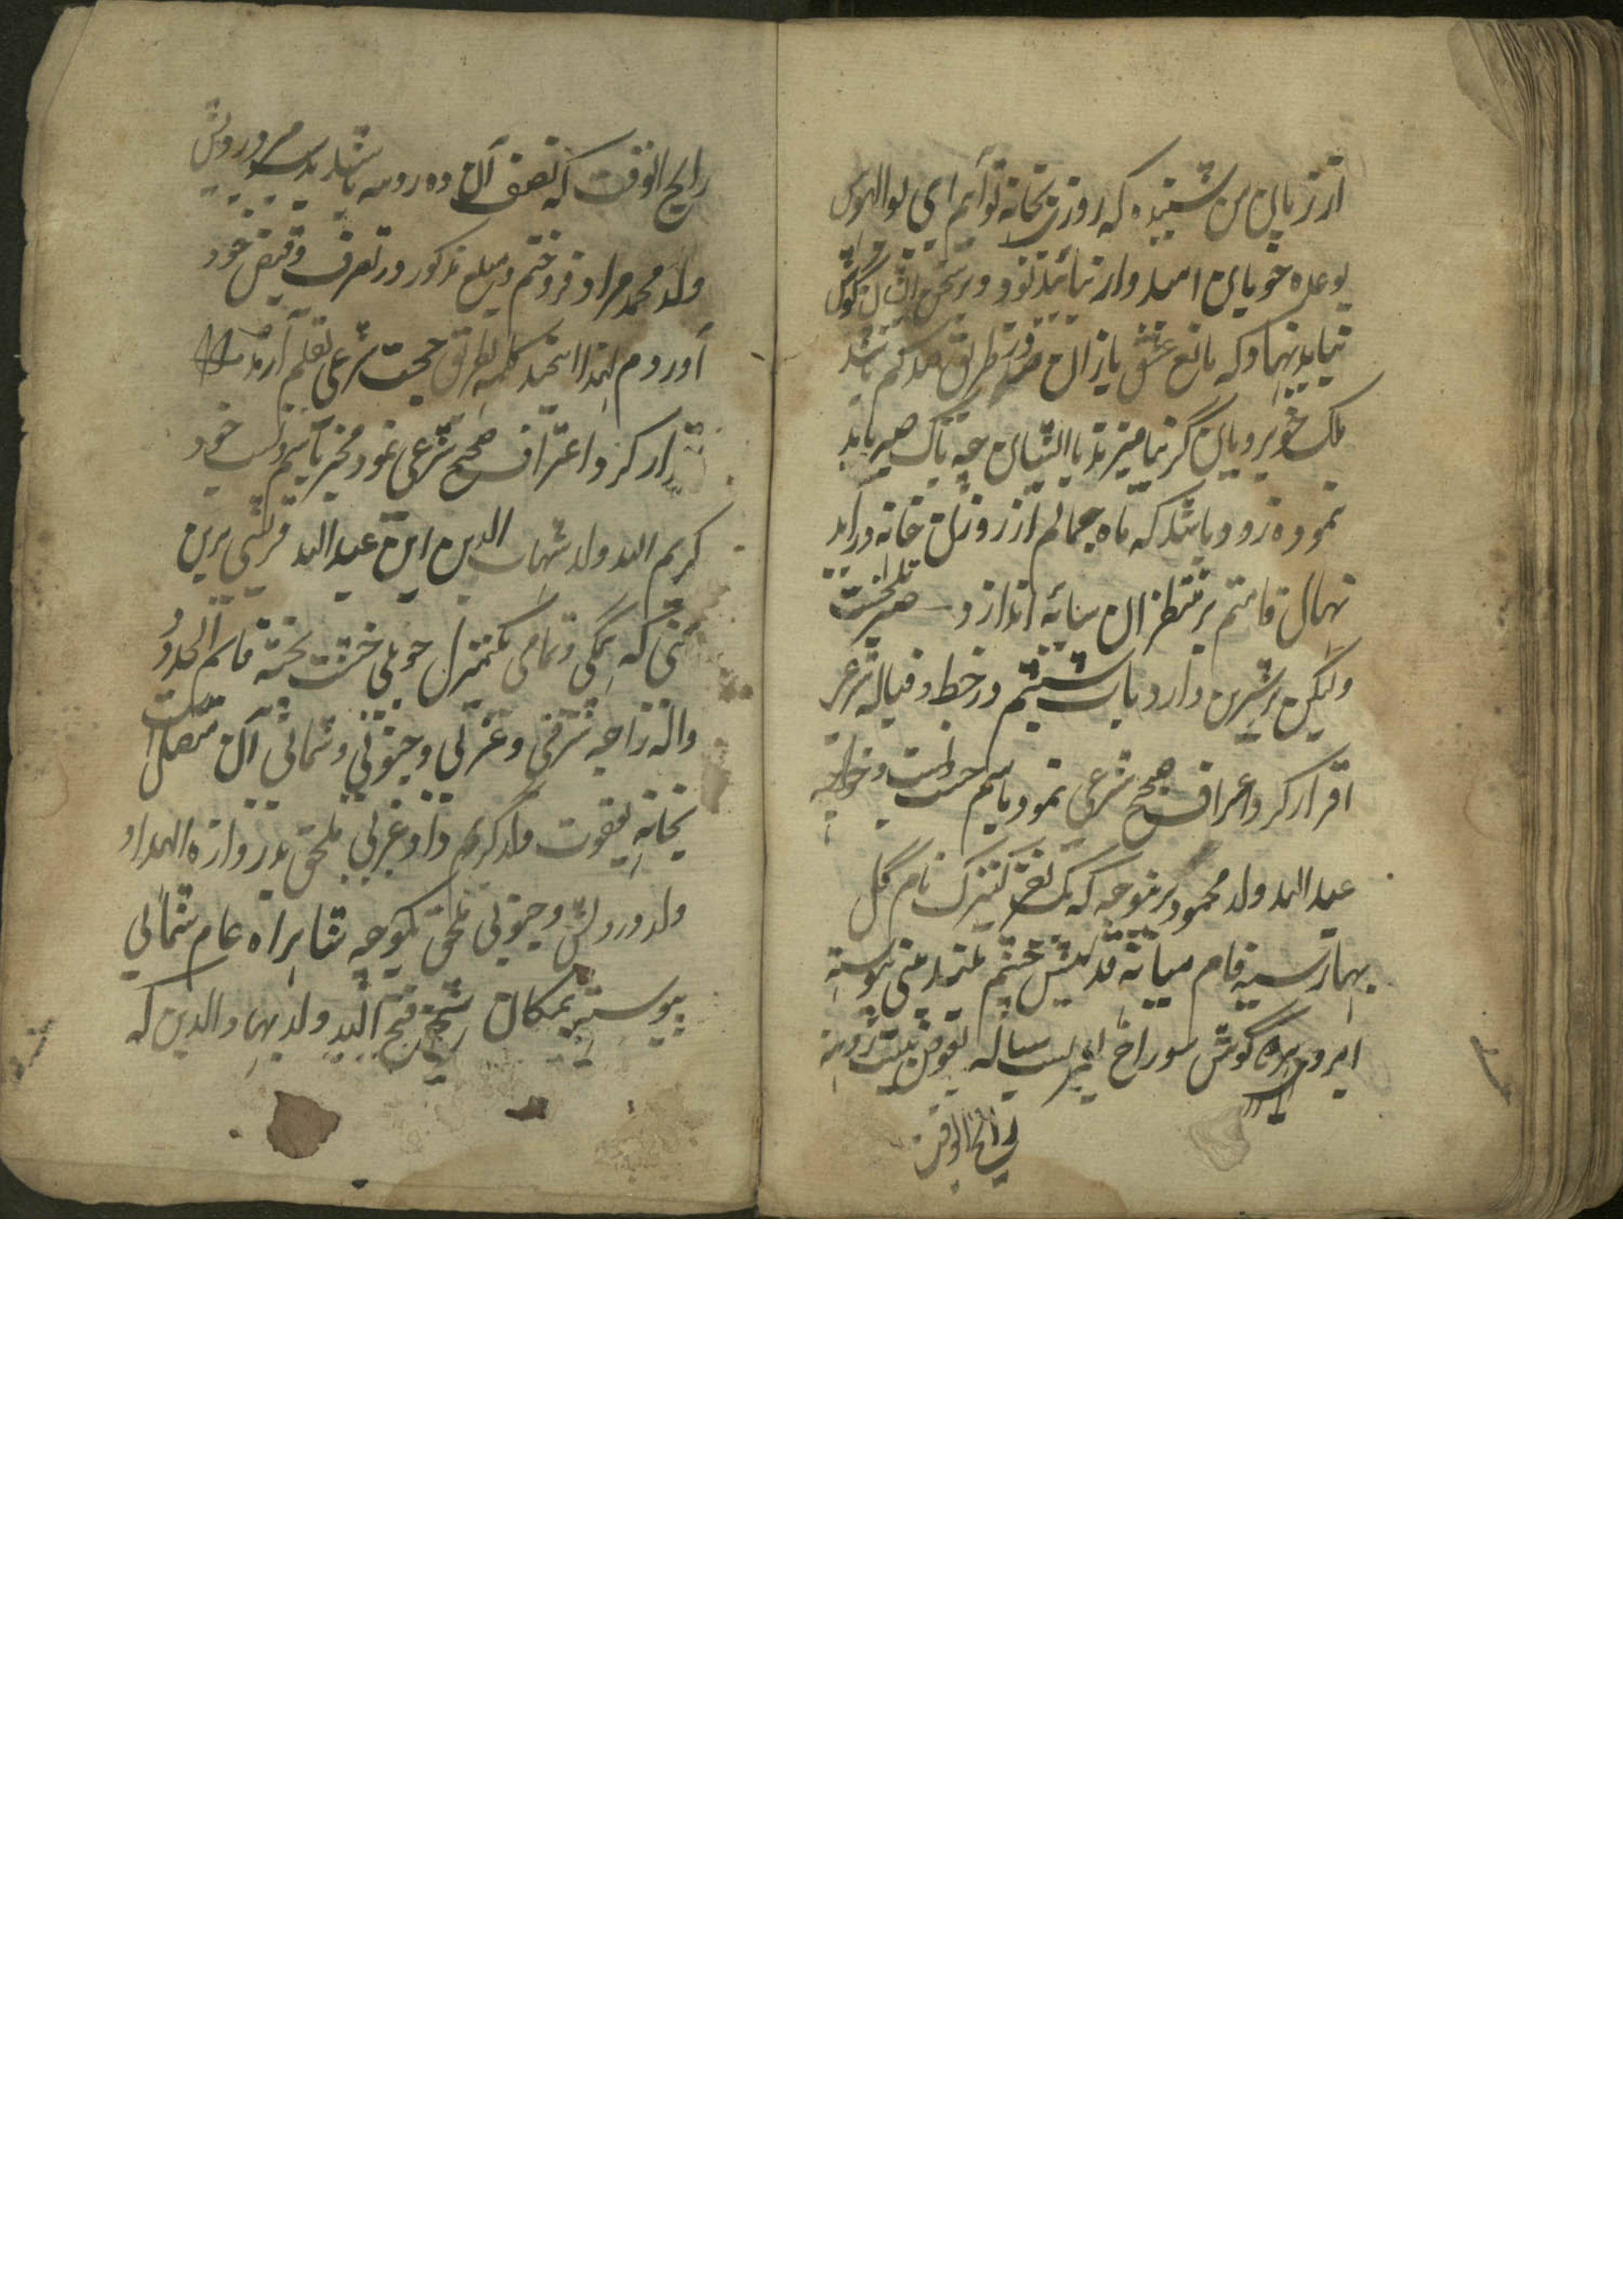 از زبان من شنیده که روزی بخانه تو آیم ای بوالهوس
بوعده خوبان امیدوار نباید بود و بر سخن ایشان گوش
نباید نهاد که مانع عشق بازان در طریق صد کم باشد
ملک خوبرویان گر نیامیزند با ایشان چه باک صبر باید
نموده زود باشد که ماه جمالم از روزن خانه درآید
نهال قامتم بر منتظران سایه اندازد صبر تلخست
ولیکن بر شیرین دارد باب ششم در خط و قباله شرعی
اقرار کرد و اعتراف صحیح شرعی نمود باسم خواجه
عبد الله ولد محمود برینوجه که یک نفر کنیزک نام گل
بهار سیه فام میانه قد میش چشم بلند بینی پیوسته
ابرو هر گوش سوراخ بیست ساله بعوض بیست روپیه
رایج الوقت
رایج الوقت که نصف آن ده روپیه باشد بدست درویش
ولد محمد مراد فروختم و مبلغ مذکور در تصرف و قبض خود
آوردم لهذا این چند کلمه بطریق حجت شرعی بقلم آرند
اقرار کرد و اعتراف صحیح شرعی نمود مخبر باسم و نسب خود
کریم الله ولد شهاب الدین ابن عبد الله قریشی برین
معنی که همگی و تمامی یکمنزل حویلی خشت پخته قاسم الحدود
والزواجه شرقی و غربی و جنوبی و شمالی آن متصل است
بخانه یعقوب ولد کریم داد غربی ملحق بدروازه الهداد
ولد درویش و جنوبی ملحق بکوچه شاهراه عام شمالی
پیوسته بمکان شیخ فتح الله ولد بهاء الدین که